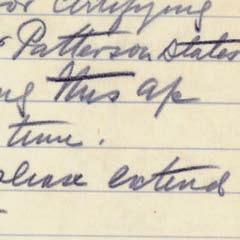 or certifying
Patterson states
ng this ap
time.
please extend